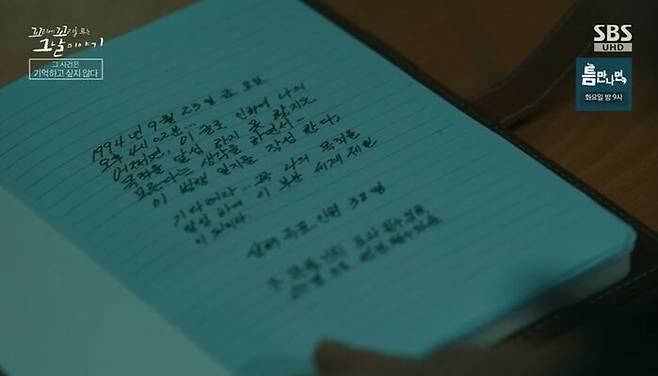 꼬리에 꼬리를 무는
그날 이야기
그 사건은
기억하고 싶지 않다
SBS
UHD
틈만나면,
화요일 밤 9시
1994년 9월 23일 금요일
오후 4시 02분...
어쩌면, 이 글로 인하여 나의
목적을 달성 하지 못 할지도
모른다는 생각을 하면서...
이 범행 일지를 작성 한다,
기다려라... 꼭 나의 목적을
달성 하여 이 부분
살해 목표 인원 38명